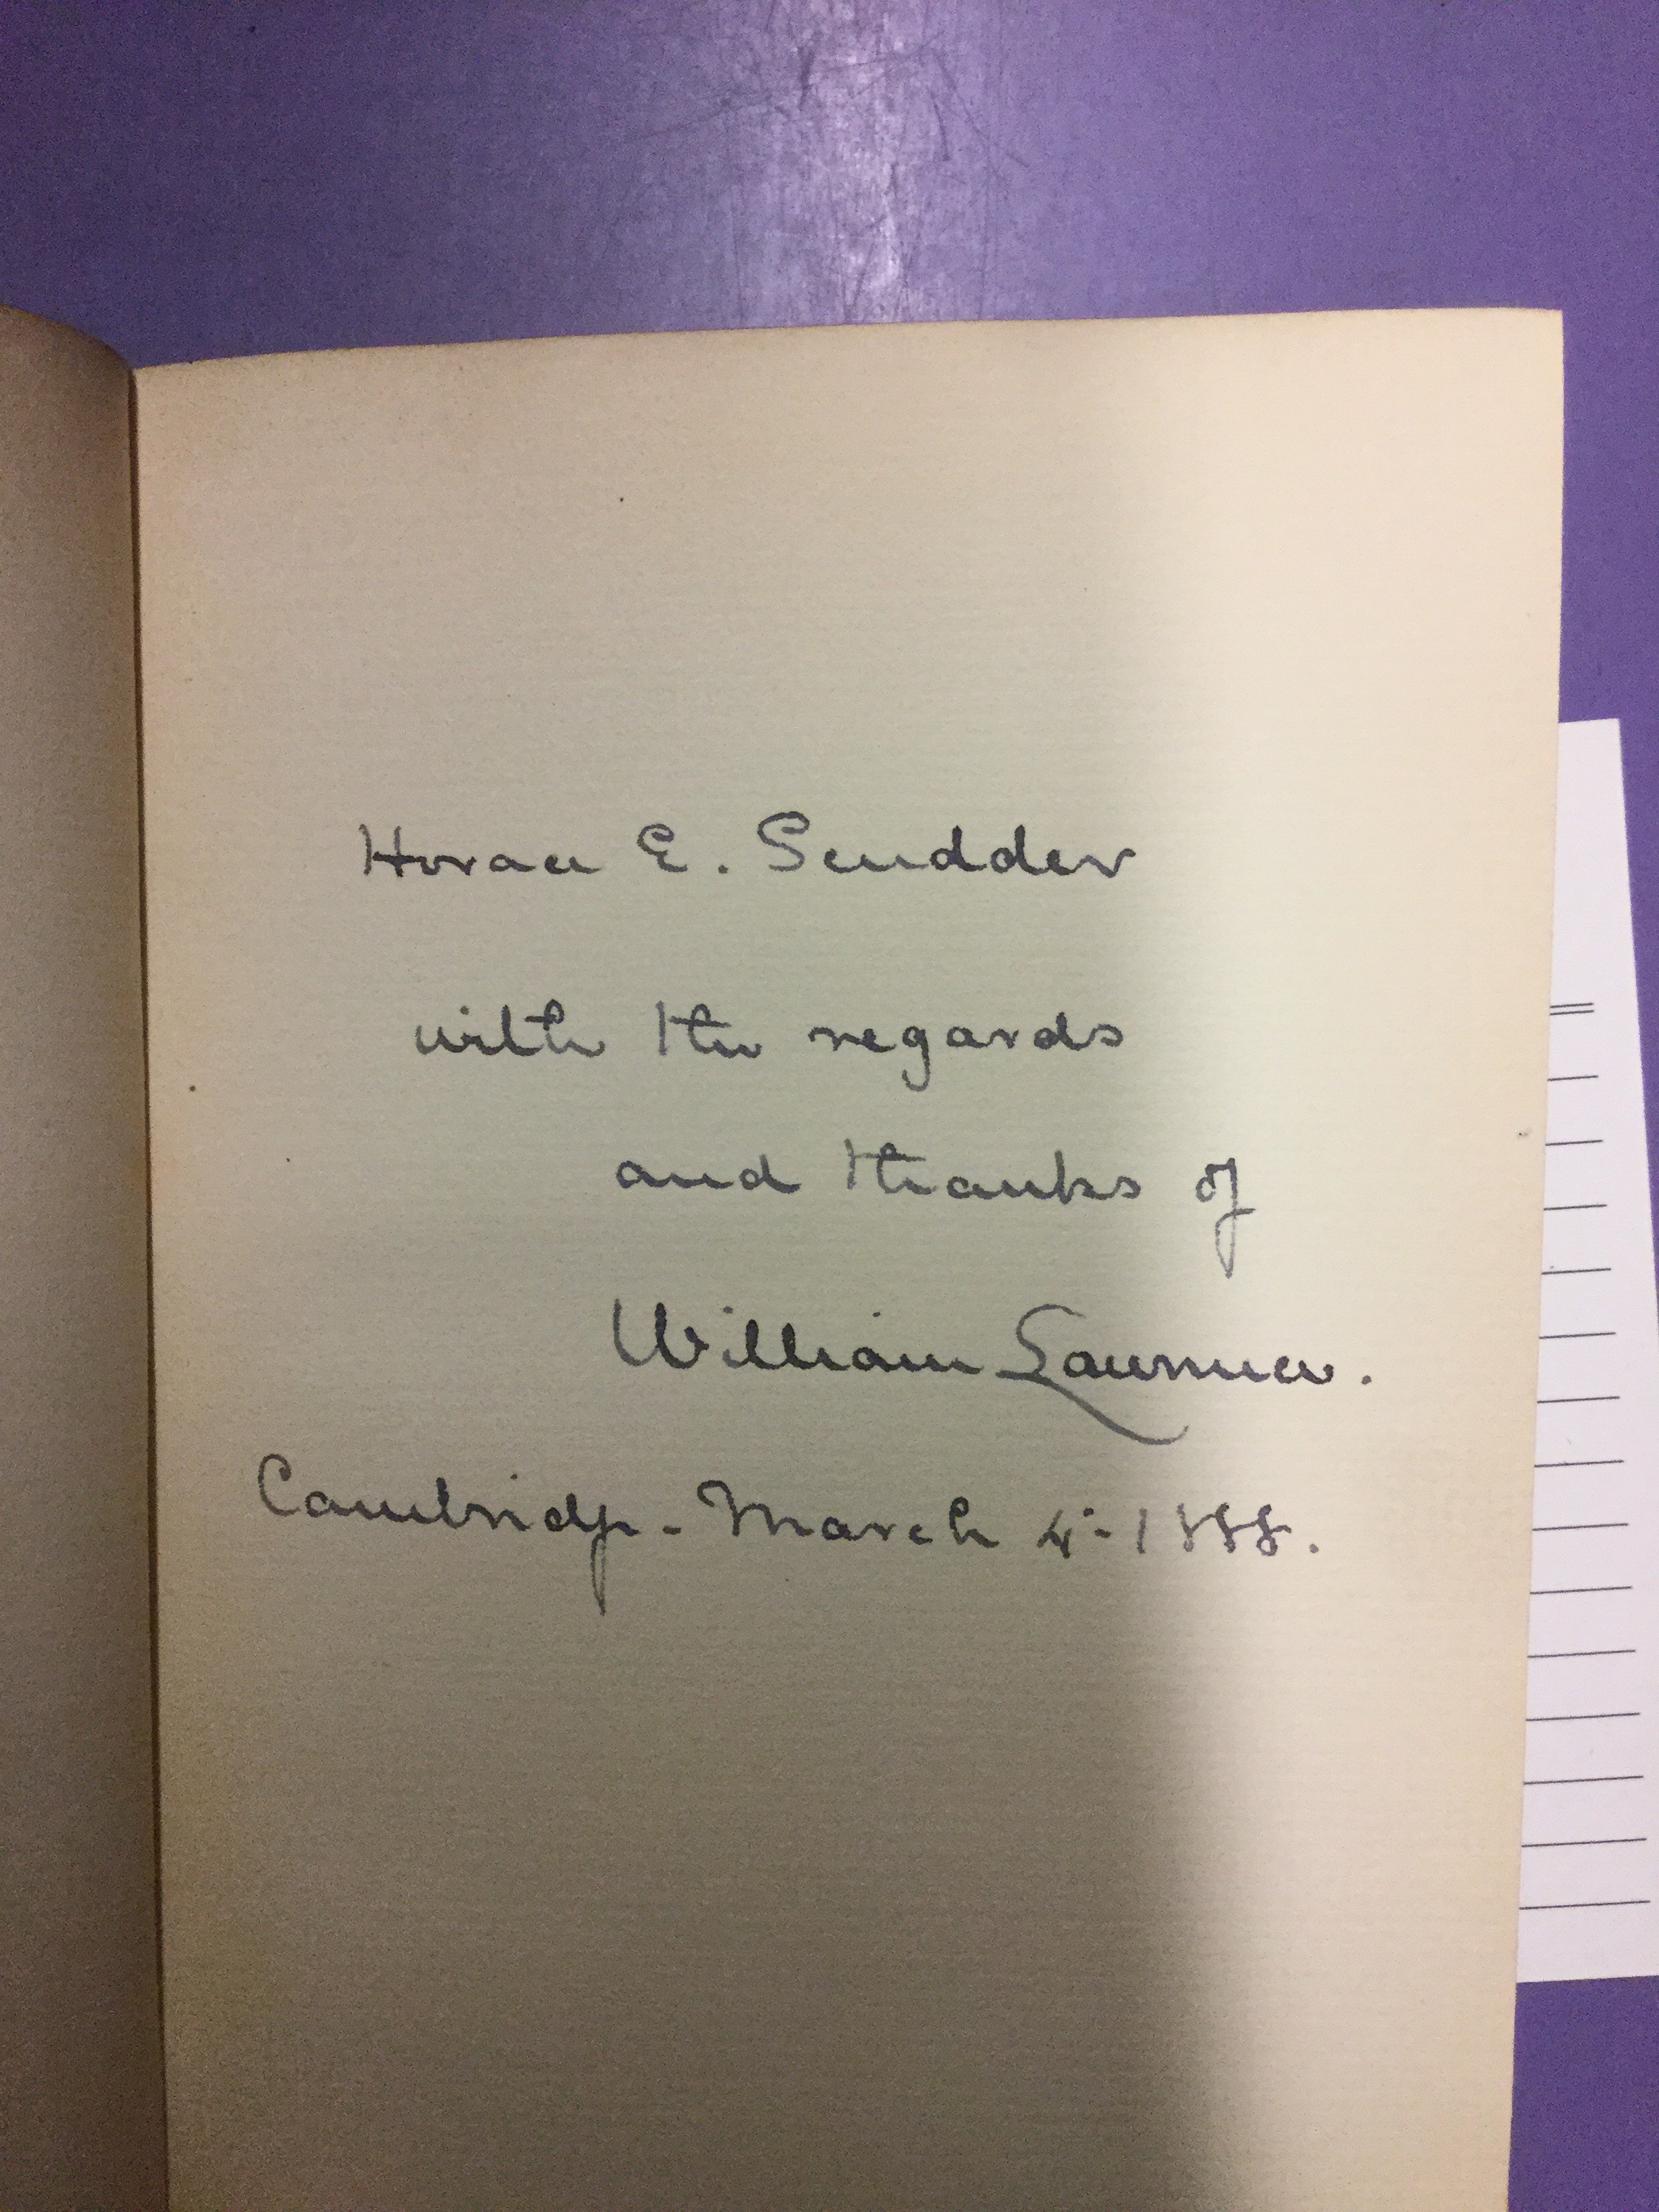 Horace E. Scudder
with the regards
and thanks of
William Lawrence.
Cambridge - March 4 - 1888.